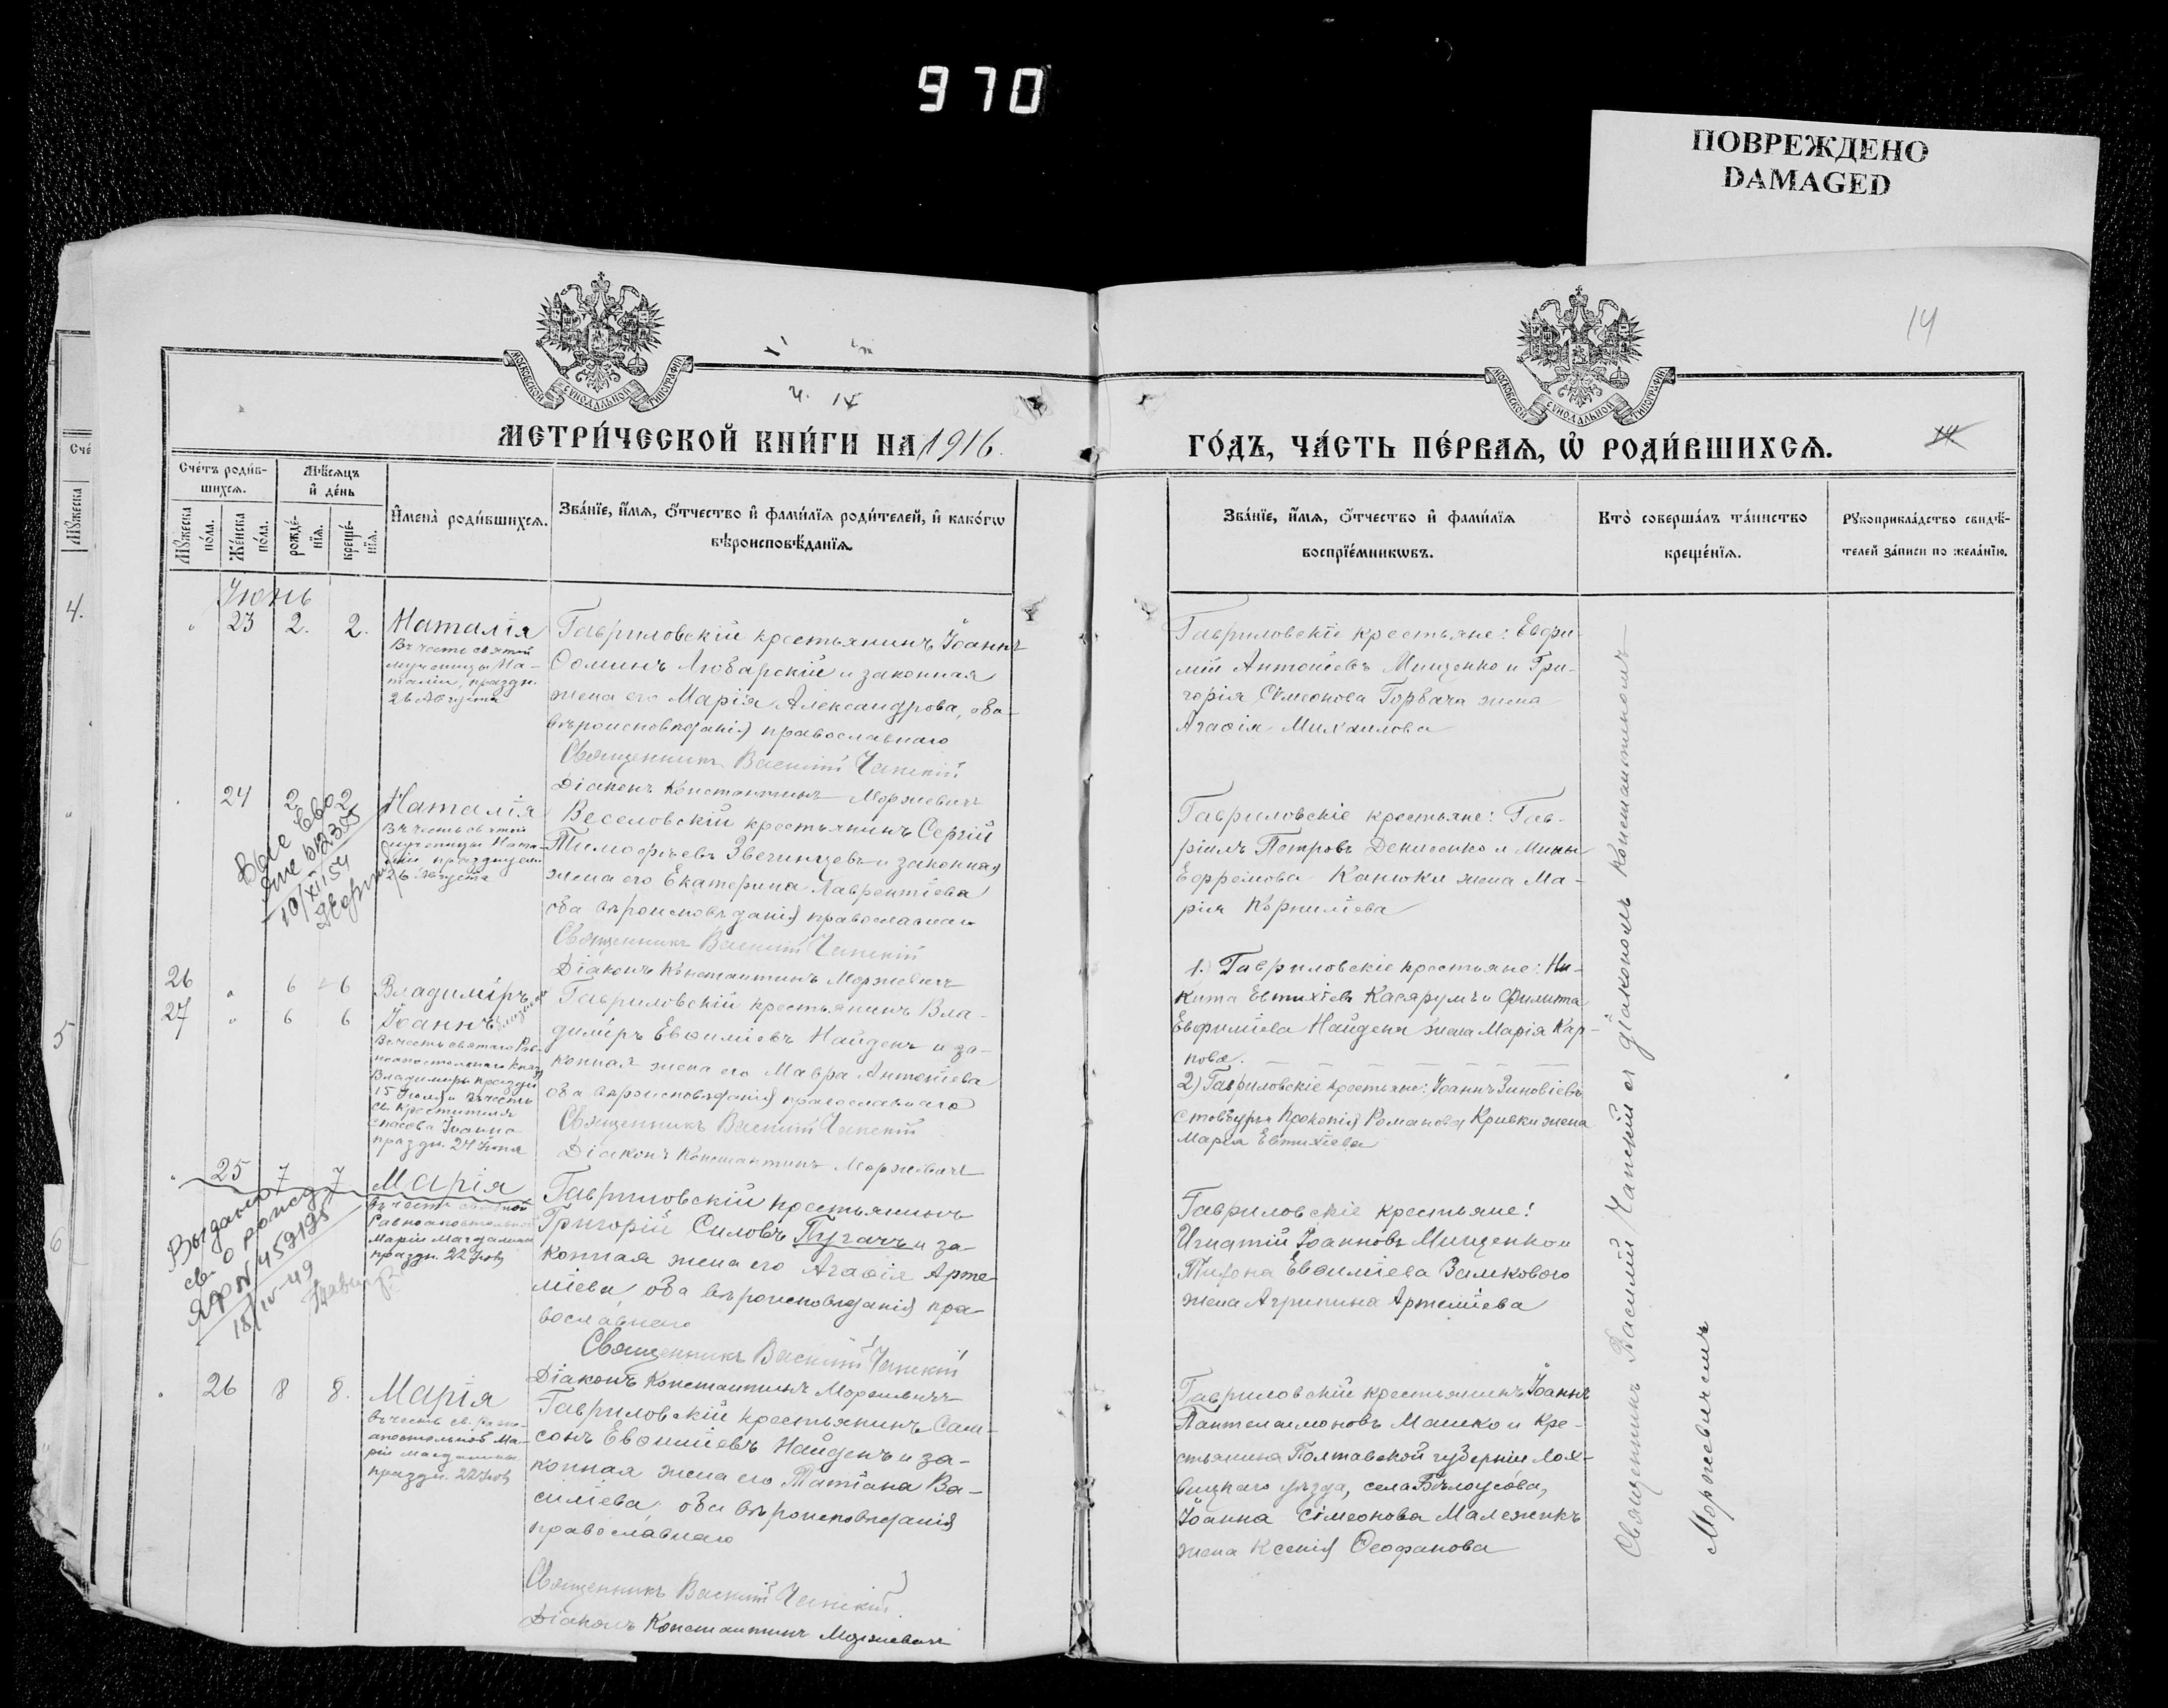 970
ПОВРЕЖДЕНО
DAMAGED
14
МОСКОВСКОЙ СѴНОДАЛЬНОЙ ТИПОГРАФІИ
МОСКОВСКОЙ СѴНОДАЛЬНОЙ ТИПОГРАФІИ
МЕТРИ́ЧЕСКОЙ КНИ́ГИ НА 1916.
ГО́ДЪ, ЧА́СТЬ ПЕ́РВАѦ, Ѡ҆ РОДИ́ВШИХСѦ.
Сче́тъ роди́в-
шихсѧ.
Мꙋ́жеска по́ла.
Же́нска по́ла.
Мѣ́сѧцъ
и҆ де́нь
рожде́-
нїѧ.
креще́-
нїѧ.
И҆мена̀ роди́вшихсѧ.
Зва́нїе, и҆́мѧ, ѻ҆́тчество и҆ фами́лїѧ роди́телей, и҆ како́гѡ
вѣроисповѣ́данїѧ.
Зва́нїе, и҆́мѧ, ѻ҆́тчество и҆ фами́лїѧ
воспрїе́мникѡвъ.
Кто̀ соверша́лъ та́инство
креще́нїѧ.
Рꙋкоприкла́дство свидѣ́-
телей за́писи по жела́нїю.
Іюнь
23 2. 2.
Наталія
Въ честь святой
мученицы На-
таліи, праздн.
26 Августа
Гавриловскій крестьянинъ Іоаннъ
Ѳоминъ Любарскій и законная
жена его Марія Александрова, оба
вѣроисповѣданія православнаго
Священникъ Василій Чапскій
Діаконъ Константинъ Моржевичъ
Гавриловскіе крестьяне: Евфи-
мій Антоніевъ Мищенко и Гри-
горія Симеонова Горбача жена
Агаѳія Михаилова
24 2 2
Наталія
Въ честь святой
мученицы Ната-
ліи, празднуемой
26 Августа
10/XI 54
Веселовскій крестьянинъ Сергій
Тимофѣевъ Звегинцевъ и законная
жена его Екатерина Лаврентіева
оба вѣроисповѣданія православнаго
Священникъ Василій Чапскій
Діаконъ Константинъ Моржевичъ
Гавриловскіе крестьяне: Гав-
ріилъ Петровъ Денисенко и Мины
Ефремова Канюки жена Ма-
рія Корниліева
26 6 6
Владиміръ
27 6 6
Іоаннъ близнецы
Въ честь святаго Рав-
ноапостольнаго Князя
Владиміра праздн.
15 Іюля и въ честь
св. Крестителя
Спасова Іоанна
праздн. 24 Іюня
Гавриловскій крестьянинъ Вла-
диміръ Евѳиміевъ Найденъ и за-
конная жена его Мавра Антоніева
оба вѣроисповѣданія православнаго
Священникъ Василій Чапскій
Діаконъ Константинъ Моржевичъ
1.) Гавриловскіе крестьяне: Ни-
кита Евтихіевъ Касярумъ и Филиппа
Евфиміева Найдена жена Марія Кар-
пова.
2) Гавриловскіе крестьяне: Іоаннъ Зиновіевъ
Прокопія Романова Кривки жена
Марія Евтихіева
25 7 7
Марія
Въ честь святой
Равноапостольной
Маріи Магдалины
праздн. 22 Іюля
Выдано
св. о рожд
ЯФ N 459195
18/IV-49
Гавриловскій крестьянинъ
Григорій Силовъ Пугачъ и за-
конная жена его Агаѳія Арте-
міева, оба вѣроисповѣданія пра-
вославнаго
Священникъ Василій Чапскій
Діаконъ Константинъ Моржевичъ
Гавриловскіе крестьяне:
Игнатій Іоанновъ Мищенко и
Тихона Евѳиміева Замкового
жена Агрипина Артеміева
26 8 8.
Марія
Въ честь св. равно-
апостольной Ма-
ріи Магдалины
праздн. 22 Іюля
Гавриловскій крестьянинъ Сам-
сонъ Евѳиміевъ Найденъ и за-
конная жена его Татіана Ва-
силіева, оба вѣроисповѣданія
православнаго
Священникъ Василій Чапскій
Діаконъ Константинъ Моржевичъ
Гавриловскій крестьянинъ Іоаннъ
Пантелеимоновъ Машко и кре-
стьянина Полтавской губерніи Лох-
вицкаго уѣзда, села Бѣлоусова,
Іоанна Симеонова Малежикъ
жена Ксенія Ѳеофанова
Священникъ Василій Чапскій съ діакономъ Константиномъ
Моржевичемъ